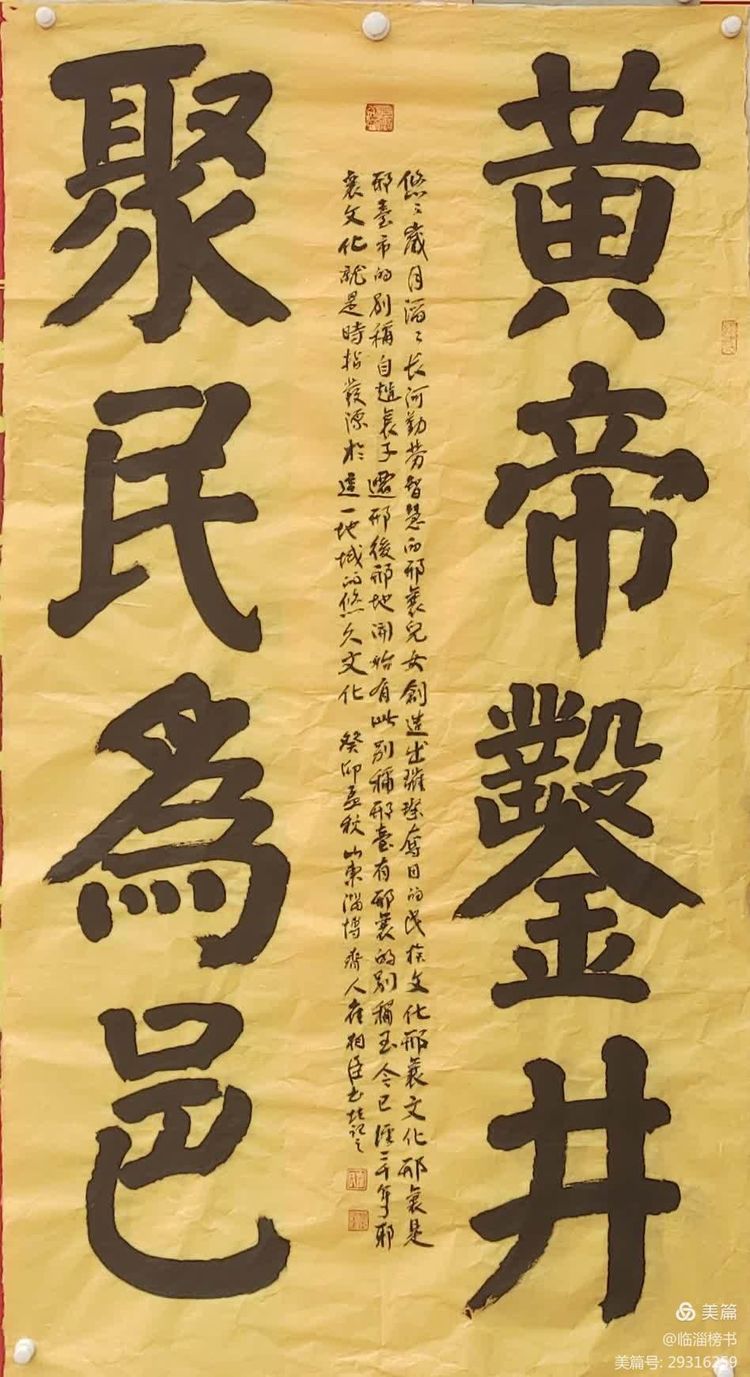 黄帝鑿井
聚民為邑
悠〻歲月滔〻長河勤劳智慧的邢襄兒女創造出璀璨奪目的民族文化邢襄文化邢襄是
邢臺市的别稱自趙襄子遷邢後邢地開始有此别稱邢臺有邢襄的别稱至今已經二千年邢
襄文化就是時指發源於這一地域的悠久文化 癸卯孟秋山東淄博齊人崔書並記之
美篇
@临淄榜书
美篇号: 29316259